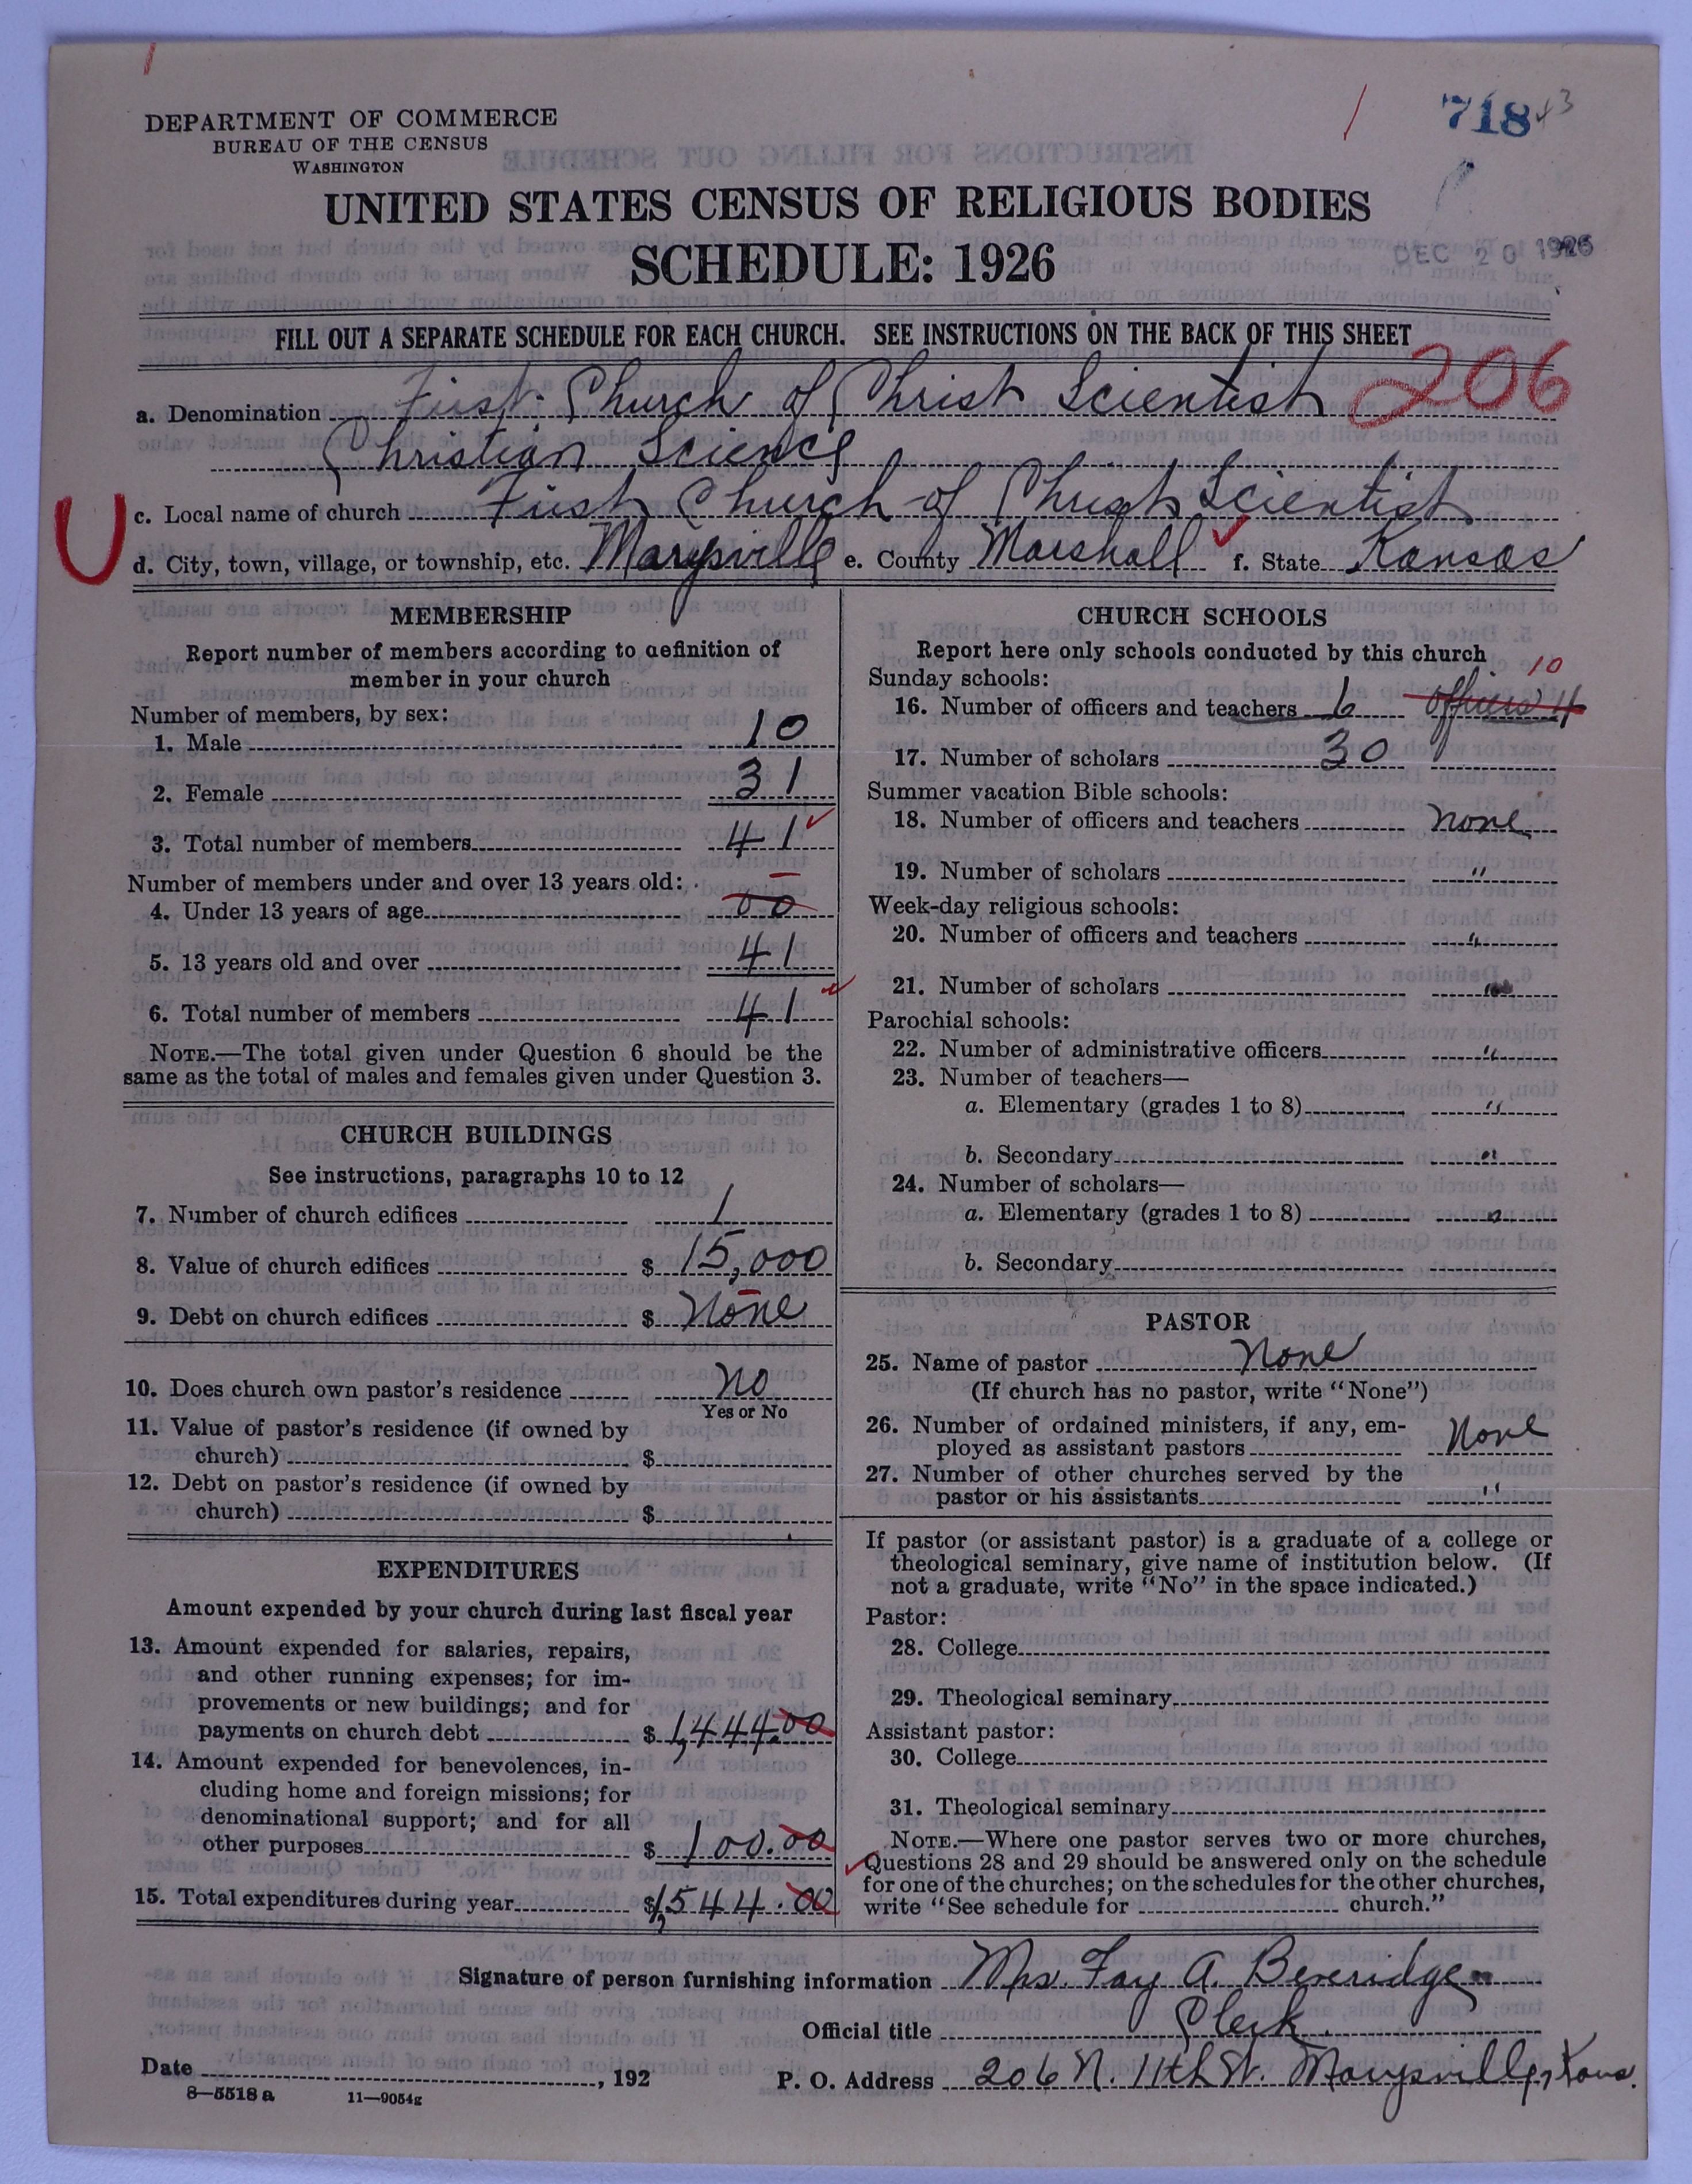 718 43
DEPARTMENT OF COMMERCE
BUREAU OF THE CENSUS
WASHINGTON
UNITED STATES CENSUS OF RELIGIOUS BODIES
SCHEDULE: 1926
DEC 20 1926
FILL OUT A SEPARATE SCHEDULE FOR EACH CHURCH. SEE INSTRUCTIONS ON THE BACK OF THIS SHEET
a. Denomination First Church of Christ Scientist 206
Christian Science
U c. Local name of church First Church of Christ Scientist
d. City, town, village, or township, etc. Marysville e. County Marshall f. State Kansas
MEMBERSHIP
Report number of members according to definition of
member in your church
Number of members, by sex:
1. Male 10
2. Female 31
3. Total number of members 41
Number of members under and over 13 years old:
4. Under 13 years of age 00
5. 13 years old and over 41
6. Total number of members 41
NOTE.—The total given under Question 6 should be the
same as the total of males and females given under Question 3.
CHURCH BUILDINGS
See instructions, paragraphs 10 to 12
7. Number of church edifices 1
8. Value of church edifices $ 15,000
9. Debt on church edifices $ None
10. Does church own pastor's residence No
Yes or No
11. Value of pastor's residence (if owned by
church) $
12. Debt on pastor's residence (if owned by
church) $
EXPENDITURES
Amount expended by your church during last fiscal year
13. Amount expended for salaries, repairs,
and other running expenses; for im-
provements or new buildings; and for
payments on church debt $ 1,444.00
14. Amount expended for benevolences, in-
cluding home and foreign missions; for
denominational support; and for all
other purposes $ 100.00
15. Total expenditures during year $1,544.00
CHURCH SCHOOLS
Report here only schools conducted by this church
Sunday schools: 10
16. Number of officers and teachers 6 officers 4
17. Number of scholars 30
Summer vacation Bible schools:
18. Number of officers and teachers None
19. Number of scholars "
Week-day religious schools:
20. Number of officers and teachers "
21. Number of scholars "
Parochial schools:
22. Number of administrative officers "
23. Number of teachers—
a. Elementary (grades 1 to 8) "
b. Secondary "
24. Number of scholars—
a. Elementary (grades 1 to 8) "
b. Secondary
PASTOR
25. Name of pastor None
(If church has no pastor, write "None")
26. Number of ordained ministers, if any, em-
ployed as assistant pastors None
27. Number of other churches served by the
pastor or his assistants "
If pastor (or assistant pastor) is a graduate of a college or
theological seminary, give name of institution below. (If
not a graduate, write "No" in the space indicated.)
Pastor:
28. College
29. Theological seminary
Assistant pastor:
30. College
31. Theological seminary
NOTE.—Where one pastor serves two or more churches,
Questions 28 and 29 should be answered only on the schedule
for one of the churches; on the schedules for the other churches,
write "See schedule for church."
Signature of person furnishing information Mrs. Fay A. Beveridge
Official title Clerk
Date , 192
P. O. Address 206 N. 11th St. Marysville, Kans.
8—5518 a 11—9054g